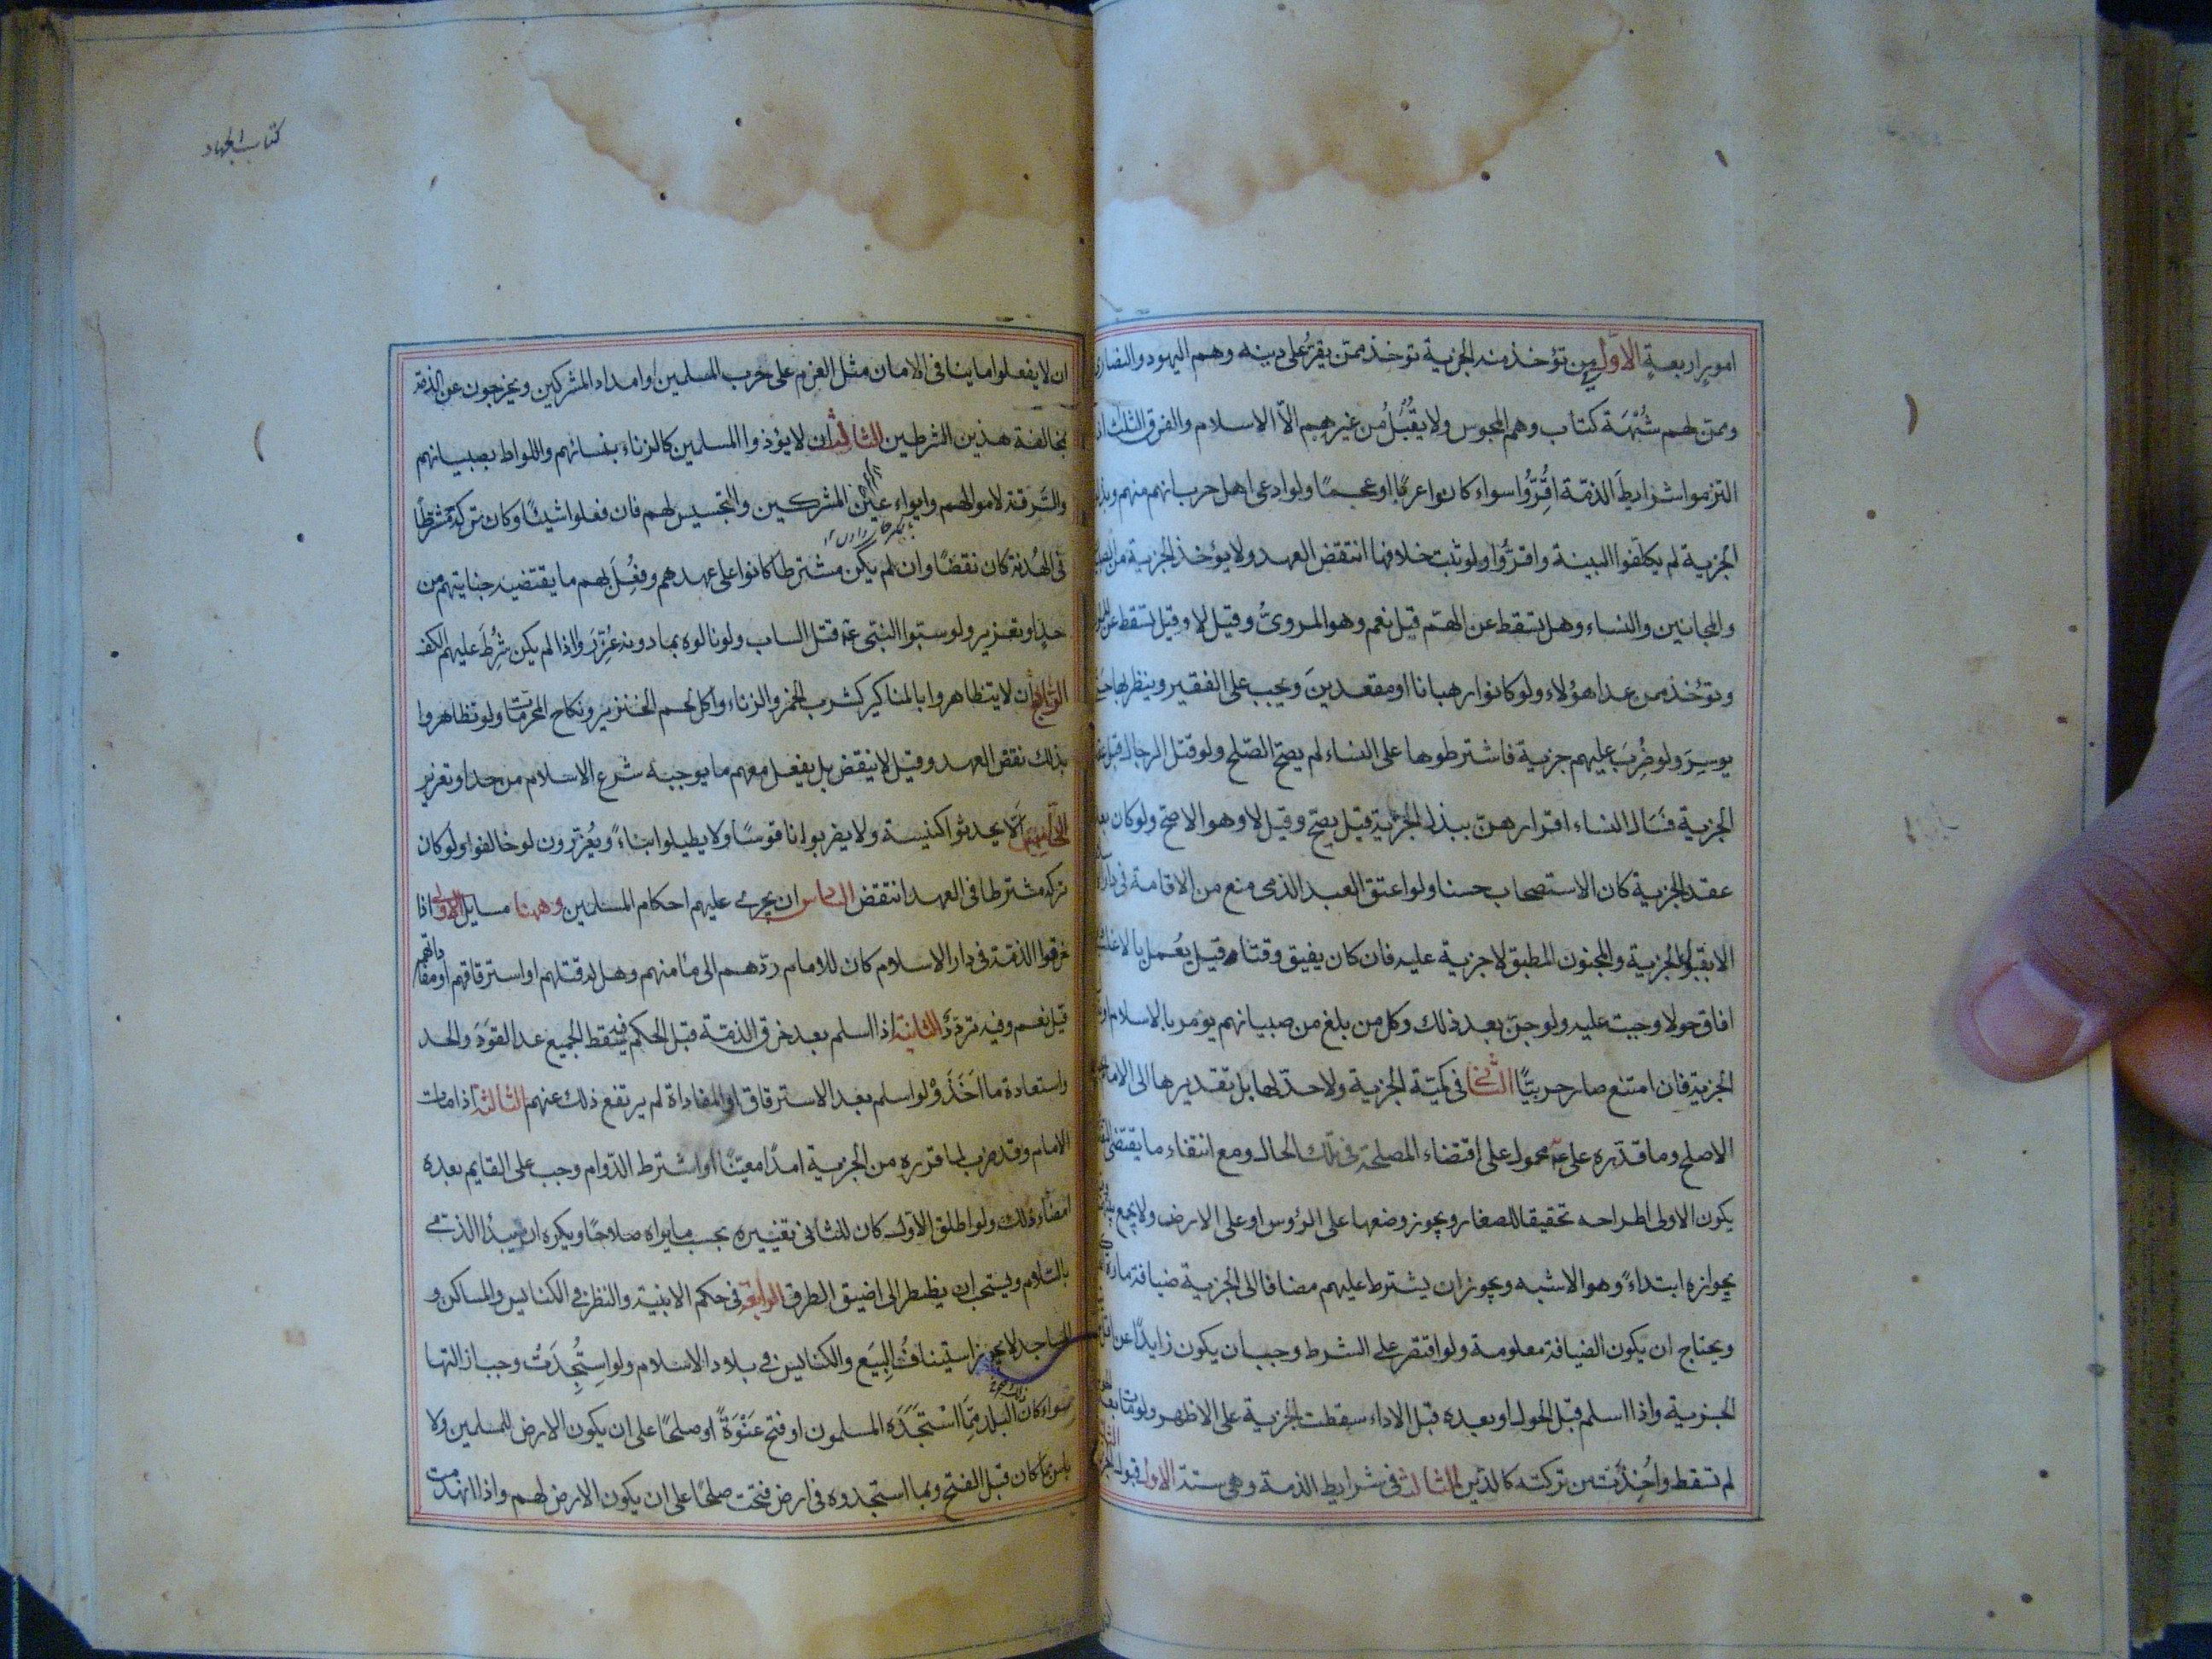 امور اربعة الاول من تؤخذ منه الجزية توخذ ممن يقر على دينه وهم اليهود والنصارى
وممن لهم شُبْهَة كتاب وهم المجوس ولا يقبل من غيرهم الا الاسلام والفرق الثلث اذا
التزموا شرايط الذمة اُقِرّوُا سواء كانوا عربًا او عجمًا ولو ادعى اهل حرب انهم منهم وبذلوا
الجزية لم يكلفوا البينة واقرُّوا ولو ثبت خلافها انتقض العهد ولا يؤخذ الجزية من الصبيان
والمجانين والنساء وهل تسقط عن الهم قيل نعم وهو المروىُّ وقيل لا وقيل تسقط عن المملوك
وتؤخذ ممن عدا هؤلاء ولو كانوا رهبانا او مقعدينَ ويجب على الفقير وينظر بها حتى
يوسِرَ ولو ضُرِبَ عليهم جزية فاشترطوها على النساء لم يصح الصّلح ولو قتل الرجال قبل عقد
الجزية فسال النساء اقرارهن ببذل الجزية قيل يصح وقيل لا وهو الاصح ولو كان بعد
عقد الجزية كان الاستصحاب حسنا ولو اعتق العبد الذمى منع من الاقامة فى دار
الا بقبول الجزية والمجنون المطبق لا جزية عليه فان كان يفيق وقتا قيل يُعمل بالاغلب
افاق حولا وجبت عليه ولو جن بعد ذلك وكل من بلغ من صبيانهم يومر بالاسلام او
الجزية فان امتنع صار حربيًّا الثانى فى كميّة الجزية ولا حدّ لها بل تقديرها الى الامام
الاصلح وما قدّره على محمول على اقتضاء المصلحة فى تلك الحال ومع انتفاء ما يقتضى
يكون الاولى اطراحه تحقيقا للصغار ويجوز وضعها على الرؤس او على الارض ولا يجمع
بجوازه ابتداءً وهو الاشبه ويجوز ان يشترط عليهم مضافا الى الجزية ضيافة مارة
ويحتاج ان يكون الضيافة معلومة ولو اقتصر على الشرط وجب ان يكون زايدًا عن اقل
الجزية واذا اسلم قبل الحول او بعده قبل الاداء سقطت الجزية على الاظهر ولو مات بعد
لم تسقط واُخِذَتْ من تركته كالدين الثالث فى شرايط الذمة وهى ستة الاول قبول
كتاب الجهاد
ان لا يفعلوا ما ينافى الامان مثل العزم على حرب المسلمين او امداد المشركين ويخرجون عن الذمة
بمخالفة هذين الشرطين الثالث ان لا يؤذوا المسلمين كالزناء بنسائهم واللواط بصبيانهم
والسَّرقة لاموالهم وايواء عين المشركين والتجسيس لهم فان فعلوا شيئًا وكان تركه مشترطًا
فى الهُدنة كان نقضًا وان لم يكن مشترطا كانوا على عهدهم وفُعِلَ بهم ما يقتضيه جنايتهم من
حدٍ او تعزير ولو سبّوا النبى قتل الساب ولو نالوه بما دونه عُزِّرَ واذا لم يكن شُرِطَ عليهم الكف
الرابع ان لا يتظاهروا بالمناكير كشرب الخمر والزناء واكل لحم الخنزير ونكاح المحرمات ولو تظاهروا
بذلك نقض العهد وقيل لا ينقض بل يفعل معهم ما يوجبه شرع الاسلام من حد او تعزير
الخامس الّا يحدثوا كنيسة ولا يضربوا ناقوسًا ولا يطيلوا بناءً ويُعزّرون لو خالفوا ولو كان
تركه مشترطا فى العهد انتقض السادس ان يجرى عليهم احكام المسلمين وههنا مسايل الاولى اذا
خرقوا الذمة فى دار الاسلام كان للامام ردّهم الى مأمنهم وهل له قتلهم او استرقاقهم او مفاداتهم
قيل نعم وفيه تردّد الثانية اذا اسلم بعد خرق الذمة قبل الحكم فيه سقط الجميع عدا القَوَدَ والحد
واستعادة ما اَخَذَ ولو اسلم بعد الاسترقاق او المفاداة لم يرتفع ذلك عنهم الثالثة اذا مات
الامام وقد ضرب لما قرره من الجزية امدًا معيّنًا او اشترط الدّوام وجب على القايم بعده
امضاء ذلك ولو اطلق الاول كان للثانى تغييره بحسب ما يراه صلاحًا ويكره ان يبدأ الذمى
بالسّلام ويستحب ان يظطر الى اضيق الطرق الرابعة فى حكم الابنية والنظر فى الكنائس والمساكن و
المساجد لا يجوز استيناف البِيَع والكنائس فى بلاد الاسلام ولو استُجِدَتْ وجب ازالتها
سواء كان البلد ممّا استَجَدَّه المسلمون او فتح عَنْوَةً او صلحًا على ان يكون الارض للمسلمين ولا
باس بما كان قبل الفتح وبما استجدوه فى ارض فتحت صلحًا على ان يكون الارض لهم واذا انهدمت